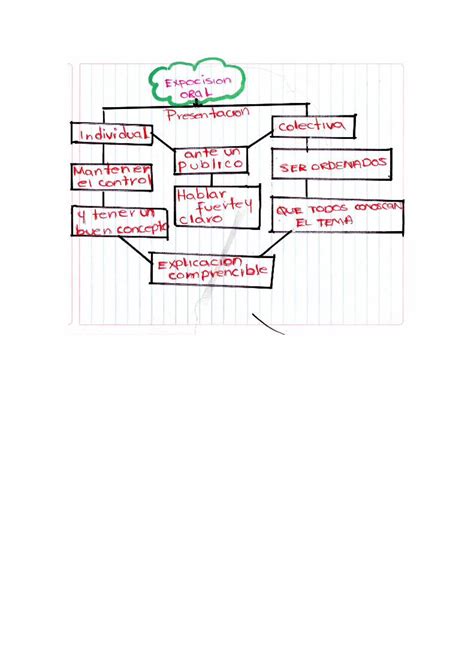 Expocision
oral
Presentacion
individual
colectiva
ante un
publico
Mantener
el control
SER ORDENADOS
Hablar
fuerte y
claro
Y tener un
buen concepto
QUE TODOS CONOSCAN
EL TEMA
Explicacion
comprencible